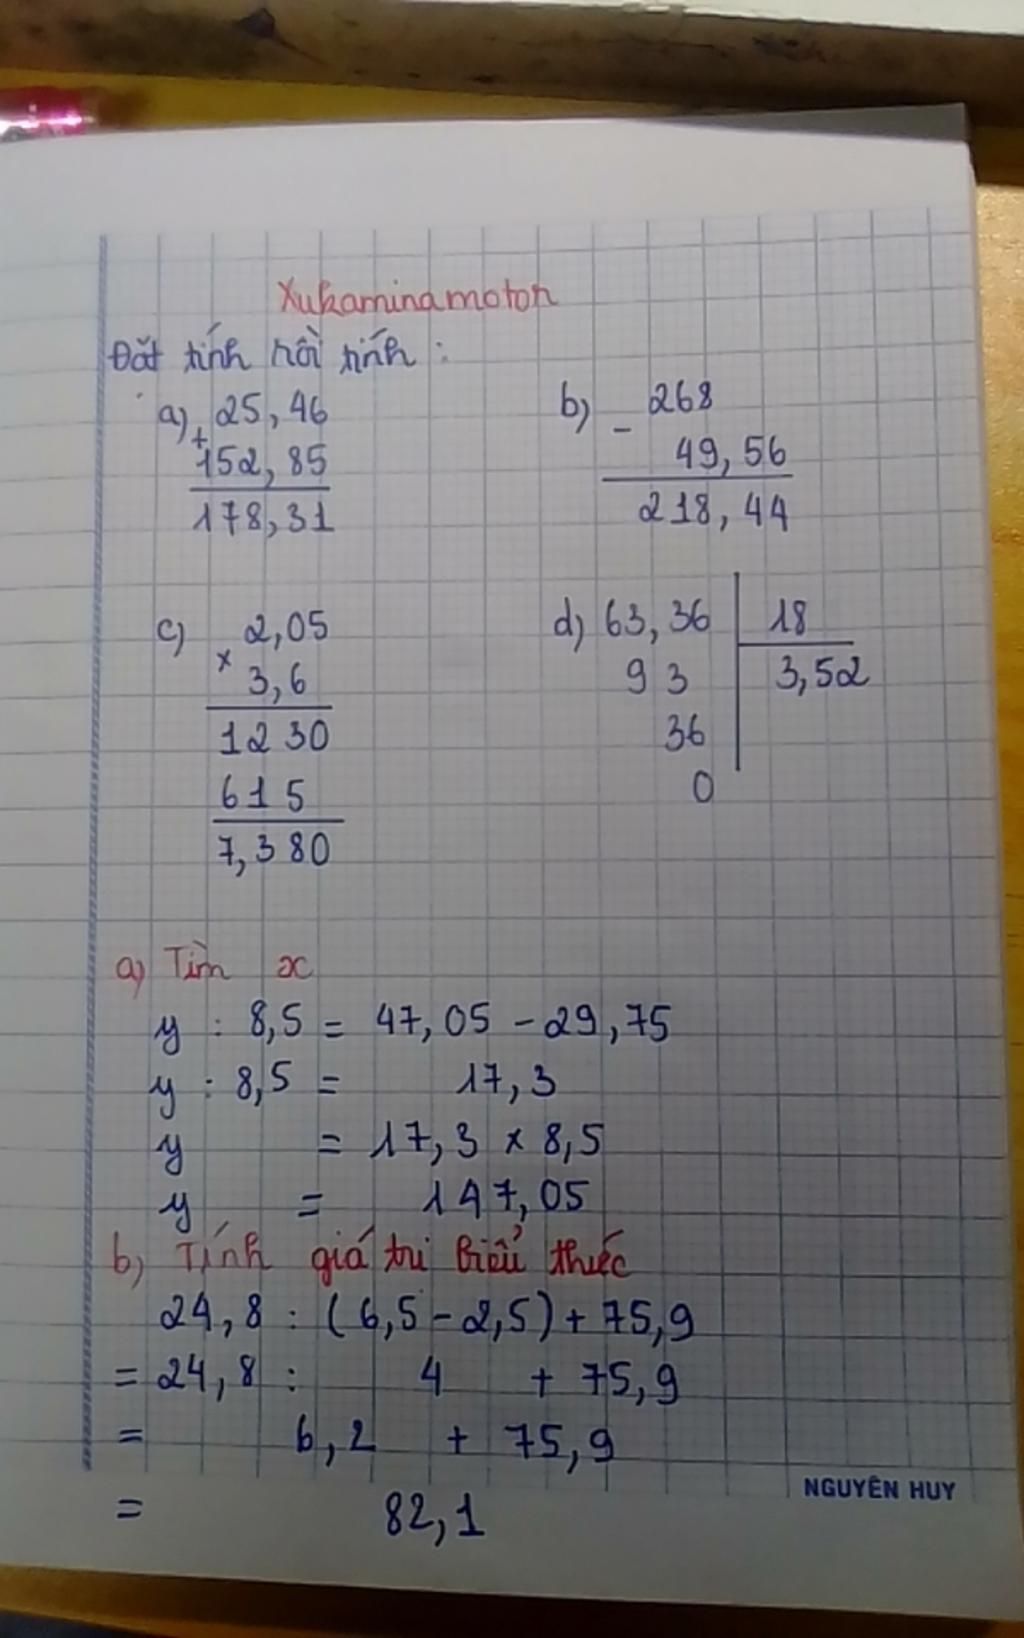 Xukaminamoton
Đặt tính rồi tính :
a) + 25,46
152,85
178,31
b) - 268
49,56
218,44
c) × 2,05
3,6
1230
615
7,380
d) 63,36 | 18
93 | 3,52
36
0
a) Tìm x
y : 8,5 = 47,05 - 29,75
y : 8,5 = 17,3
y = 17,3 × 8,5
y = 147,05
b) Tính giá trị biểu thức
24,8 : (6,5 - 2,5) + 75,9
= 24,8 : 4 + 75,9
= 6,2 + 75,9
= 82,1
NGUYÊN HUY